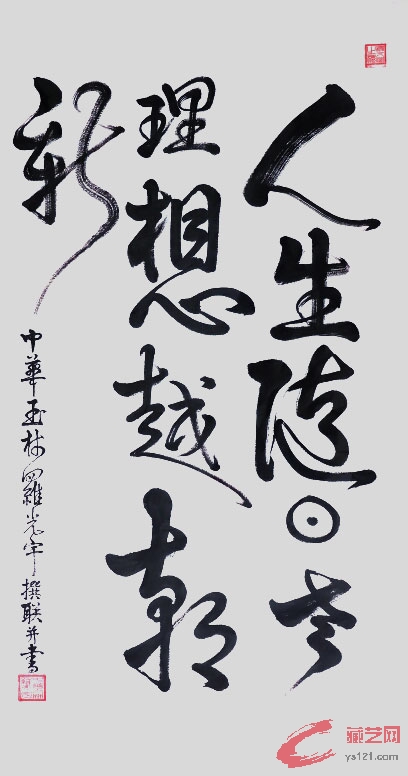 人生随日老
理想越朝
新
中華玉林羅光宇撰联并書
藏艺网
ys121.com